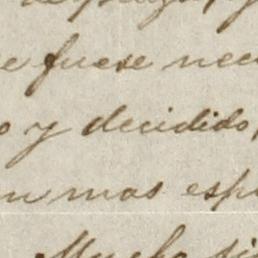 e fuese nec
o y decidido,
n mas esp
Mucho si